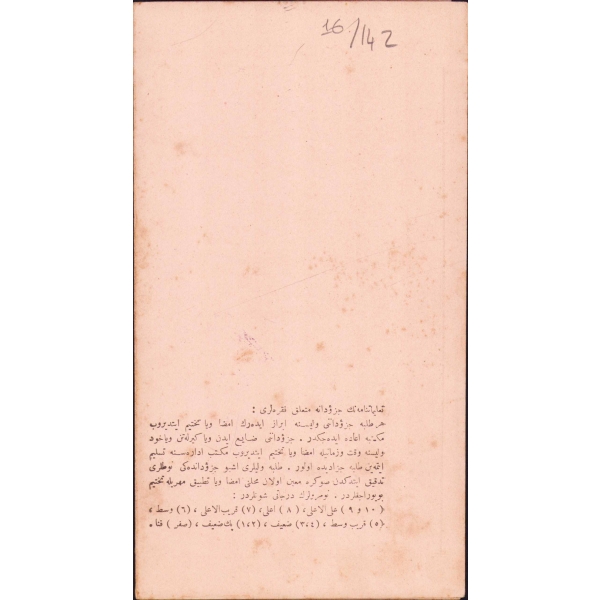 16/142
تعلیماتنامه‌نك جزؤدانه متعلق فقره‌لری :
هر طلبه جزؤدانی ولیسنه ابراز ایده‌رك امضا ویا تختیم ایتدیروب
مكتبه اعاده ایده‌جكدر . جزؤدانی ضایع ایدن ویا كیرله‌تن ویاخود
ولیسنه وقت وزمانیله امضا ویا تختیم ایتدیروب مكتب اداره‌سنه تسلیم
ایتمه‌ین طلبه جزادیده اولور . طلبه ولیلری اشبو جزؤدانده‌كی نوطه‌لری
تدقیق ایتدكدن صوكره معین اولان محلنی امضا ویا تطبیق مهریله تختیم
بویوراجقلردر . نومرولرك درجاتی شونلردر :
( ١٠ و ٩ ) علی الاعلی ، ( ٨ ) اعلی ، (٧) قریب الاعلی ، (٦) وسط ،
(٥) قریب وسط ، (٣،٤) ضعیف ، (١،٢) پك ضعیف ، (صفر) فنا .